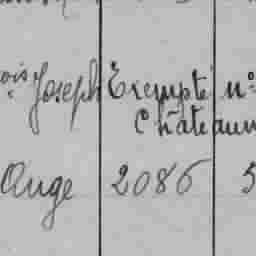 ois Joseph Exempté n°
Châteaun
Ange 2086 5